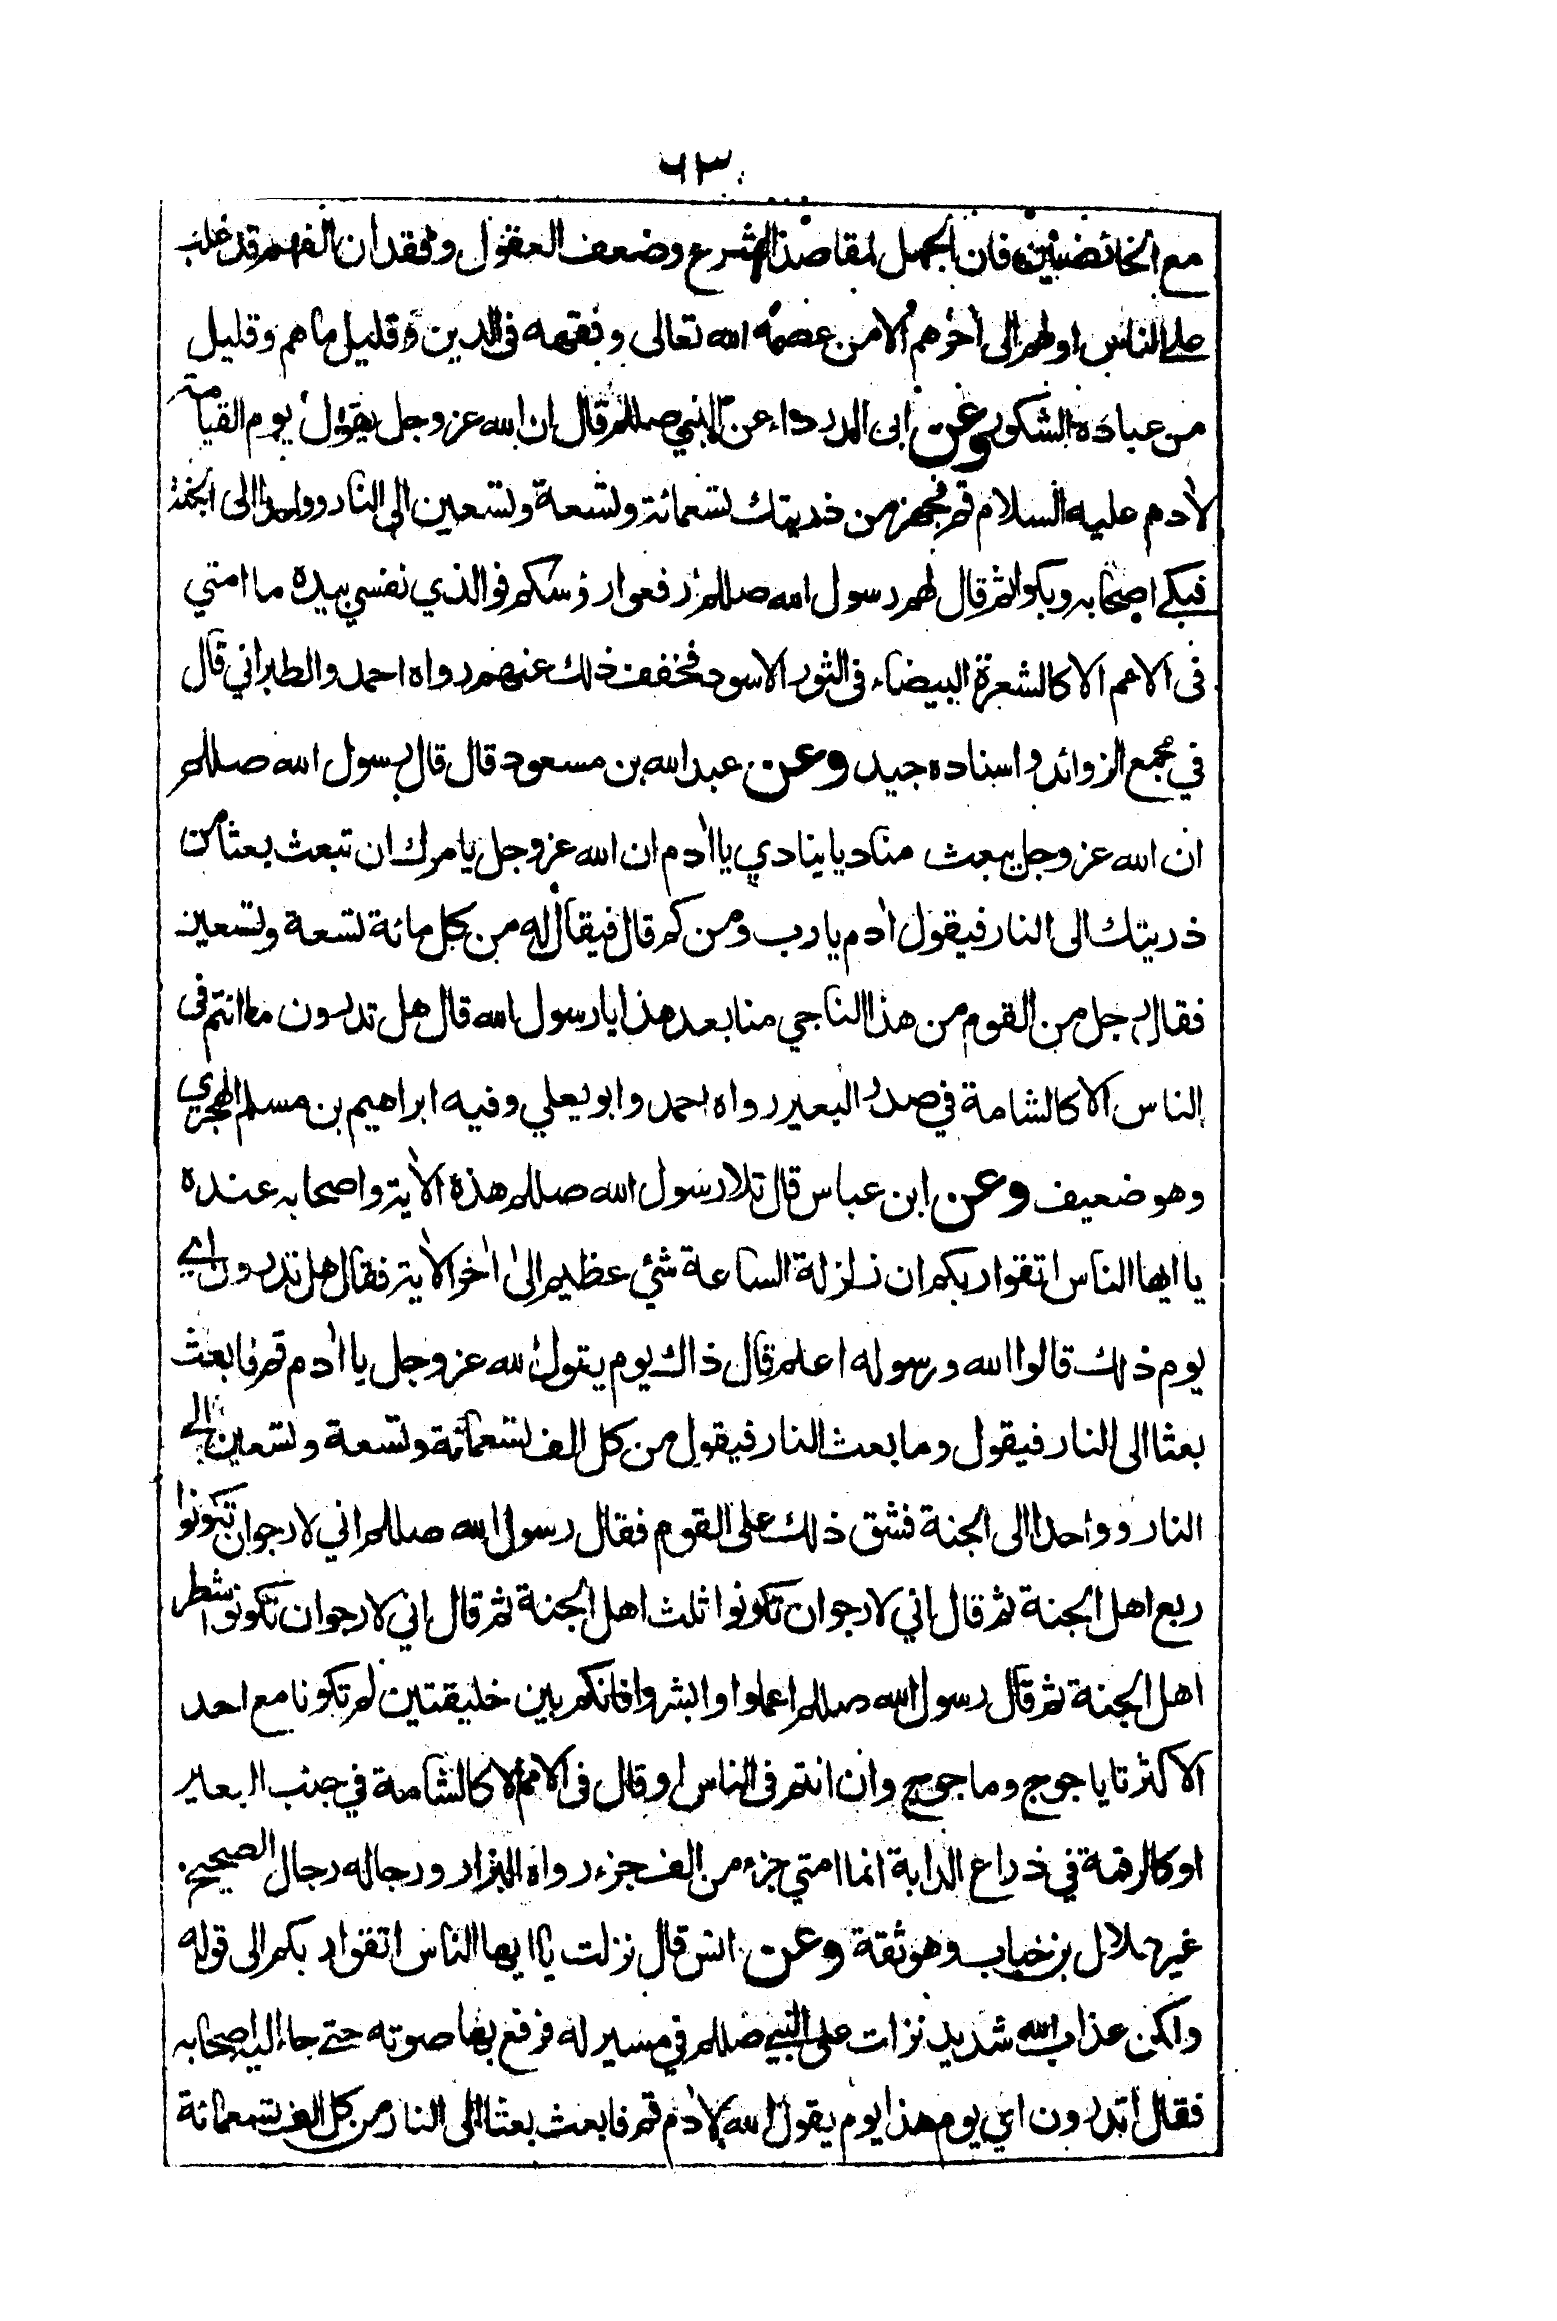 ٦٣
مع الخائضين فان الجهل لمقاصد الشرع وضعف العقول وفقدان الفهم قد غلب
على الناس اولهم الى اخرهم الا من عصمه الله تعالى وفقهه فى الدين وقليل ما هم وقليل
من عباده الشكور وعن ابى الدرداء عن النبي صللم قال ان الله عز وجل يقول يوم القيامة
لآدم عليه السلام قم فجهز من ذريتك تسعمائة وتسعة وتسعين الى النار وواحدا الى الجنة
فبكى اصحابه وبكوا ثم قال لهم رسول الله صللم ارفعوا رؤسكم فوالذي نفسي بيده ما امتي
فى الامم الا كالشعرة البيضاء فى الثور الاسود فخفف ذلك عنهم رواه احمد والطبراني قال
في مجمع الزوائد واسناده جيد وعن عبد الله بن مسعود قال قال رسول الله صللم
ان الله عز وجل يبعث مناديا ينادي يا آدم ان الله عز وجل يامرك ان تبعث بعثا من
ذريتك الى النار فيقول آدم يا رب ومن كم قال فيقال له من كل مائة تسعة وتسعين
فقال رجل من القوم من هذا الناجي منا بعد هذا يا رسول الله قال هل تدرون ما انتم فى
الناس الا كالشامة في صدر البعير رواه احمد وابو يعلي وفيه ابراهيم بن مسلم الهجري
وهو ضعيف وعن ابن عباس قال تلا رسول الله صللم هذه الآية واصحابه عنده
يا ايها الناس اتقوا ربكم ان زلزلة الساعة شئ عظيم الى اٰخر الاٰية فقال هل تدرون اي
يوم ذلك قالوا الله ورسوله اعلم قال ذاك يوم يقول الله عز وجل يا اٰدم قم فابعث
بعثا الى النار فيقول وما بعث النار فيقول من كل الف تسعمائة وتسعة وتسعين الى
النار وواحدا الى الجنة فشق ذلك على القوم فقال رسول الله صللم اني لارجو ان تكونوا
ربع اهل الجنة ثم قال اني لارجو ان تكونوا ثلث اهل الجنة ثم قال اني لارجو ان تكونوا شطر
اهل الجنة ثم قال رسول الله صللم اعملوا وابشروا فانكم بين خليقتين لم تكونا مع احد
الا كثرتا ياجوج وماجوج وان انتم فى الناس او قال فى الامم الا كالشامة في جنب البعير
او كالرقمة في ذراع الدابة انما امتي جزء من الف جزء رواه البزار ورجاله رجال الصحيح
غير هلال بن خباب وهو ثقة وعن انس قال نزلت يا ايها الناس اتقوا ربكم الى قوله
ولكن عذاب الله شديد نزلت على النبي صللم في مسير له فرفع بها صوته حتى جاء اليه اصحابه
فقال اتدرون اي يوم هذا يوم يقول الله لاٰدم قم فابعث بعثا الى النار من كل الف تسعمائة